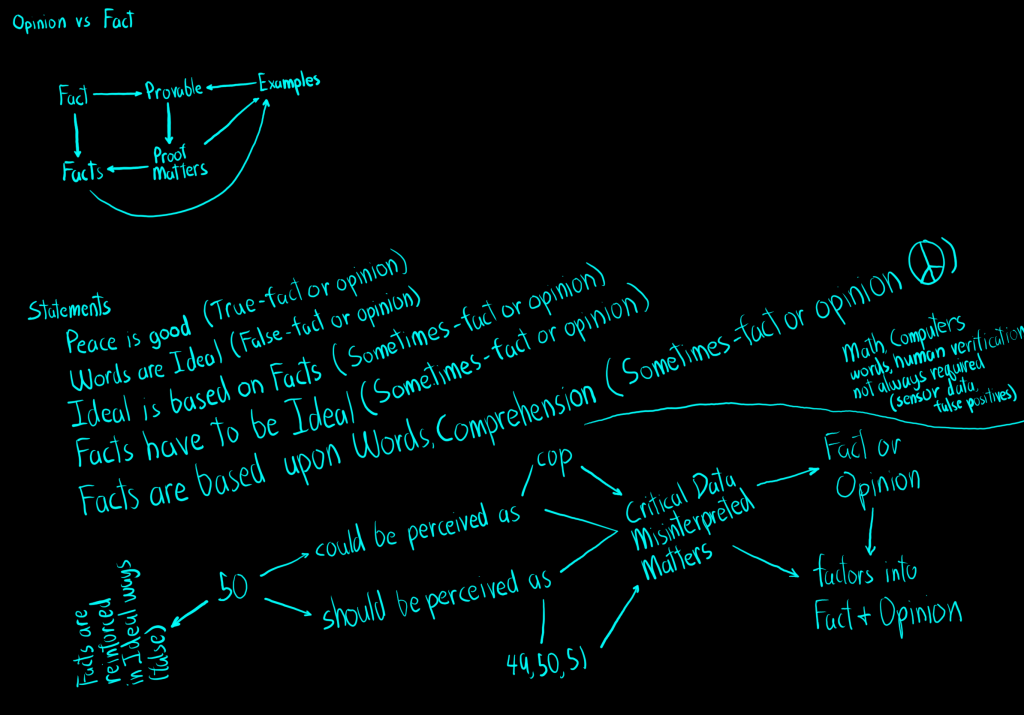 Opinion vs Fact
Fact
Provable
Examples
Facts
Proof
Matters
Statements
Peace is good (True-fact or opinion)
Words are Ideal (False-fact or opinion)
Ideal is based on Facts (Sometimes-fact or opinion)
Facts have to be Ideal (Sometimes-fact or opinion)
Facts are based upon Words, Comprehension (Sometimes-fact or opinion ☮)
Math, Computers
words, human verification
not always required
(sensor data,
false positives)
50
could be perceived as
cop
should be perceived as
49, 50, 51
Critical Data
Misinterpreted
Matters
Fact or
Opinion
factors into
Fact + Opinion
Facts are
reinforced
in Ideal ways
(false)